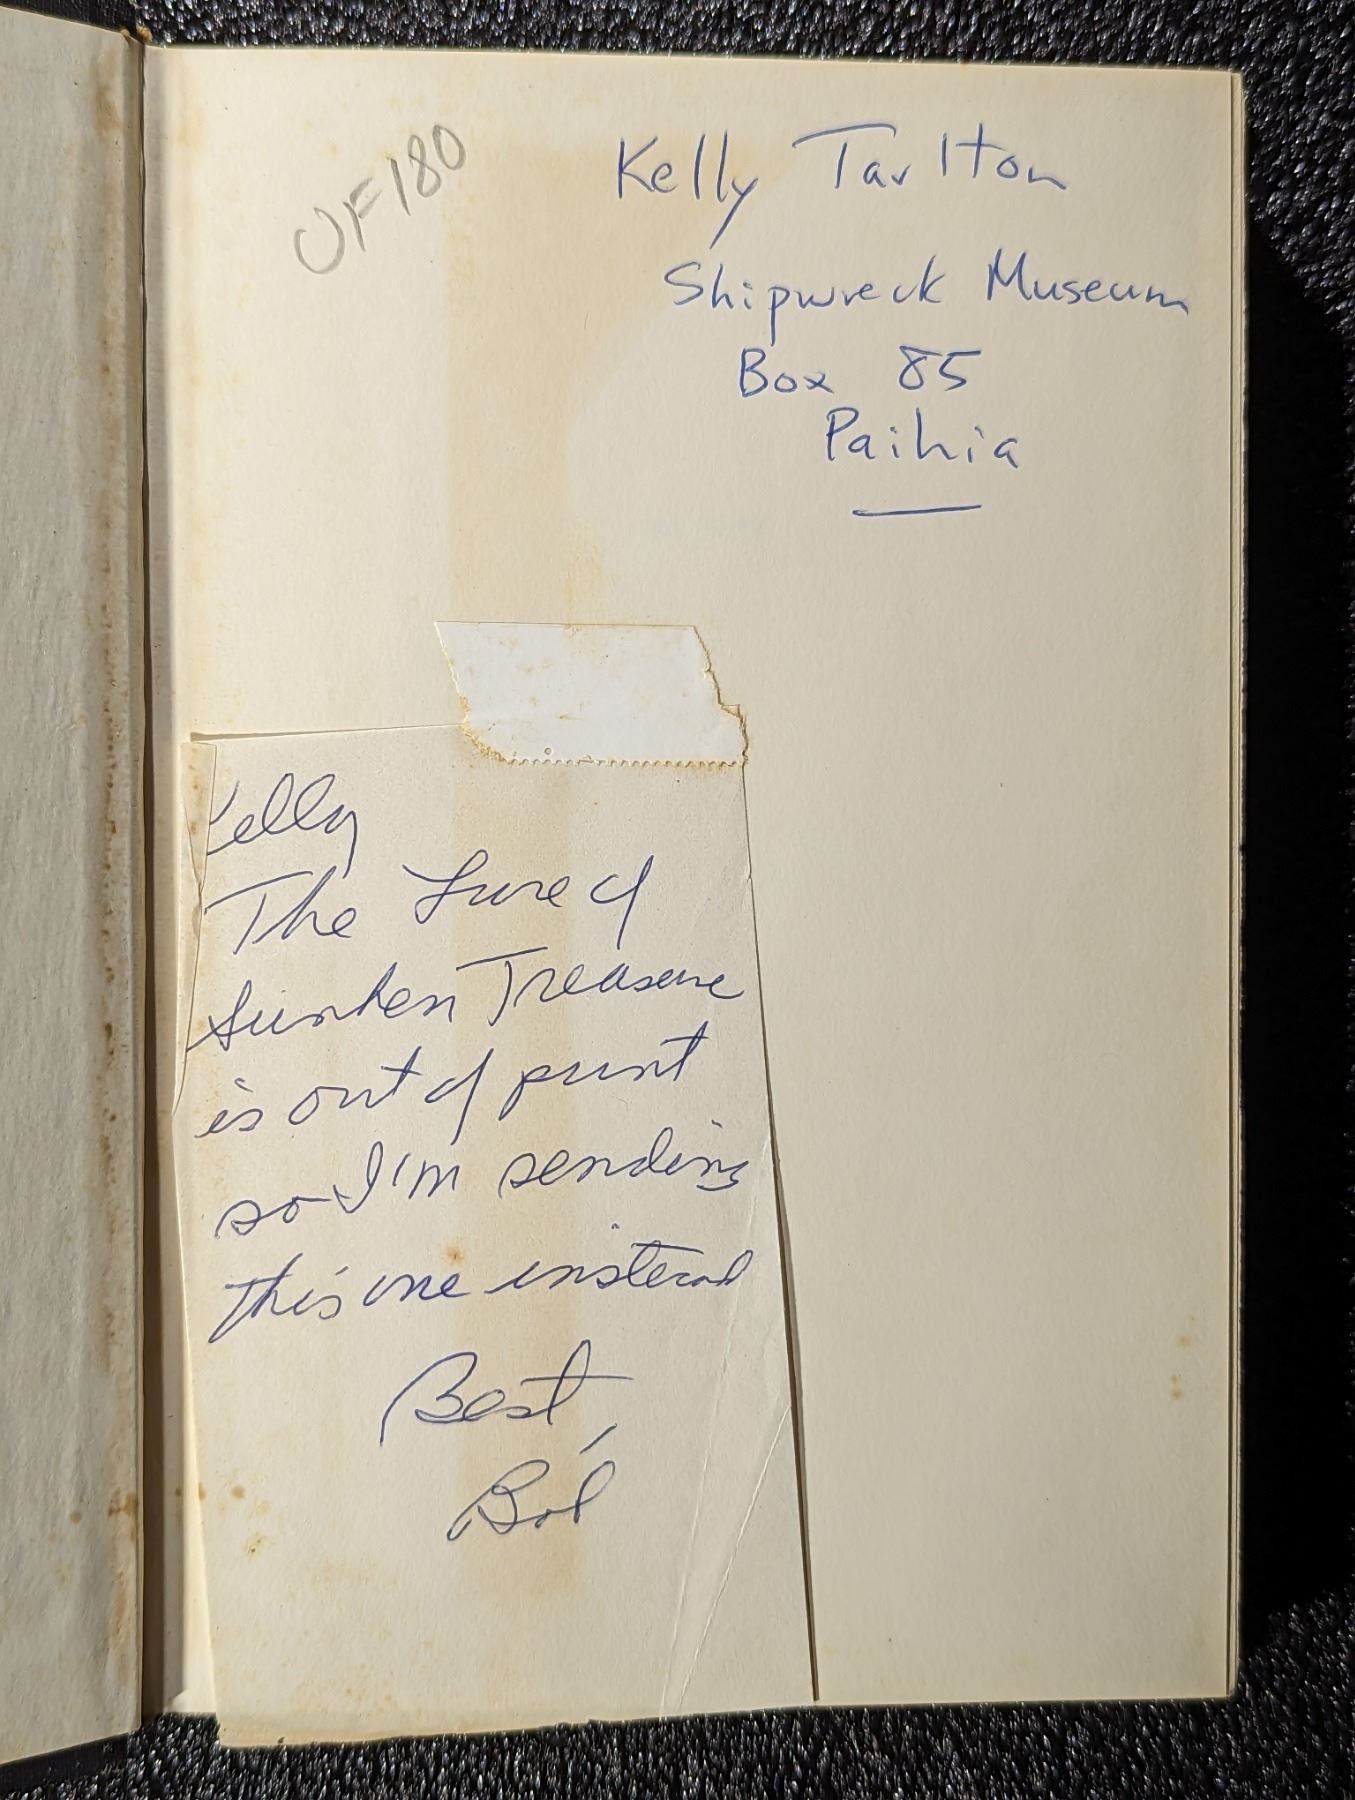 UF180
Kelly Tarlton
Shipwreck Museum
Box 85
Paihia
Kelly
The Lure of
Sunken Treasure
is out of print
so I'm sending
this one instead
Best,
Bob